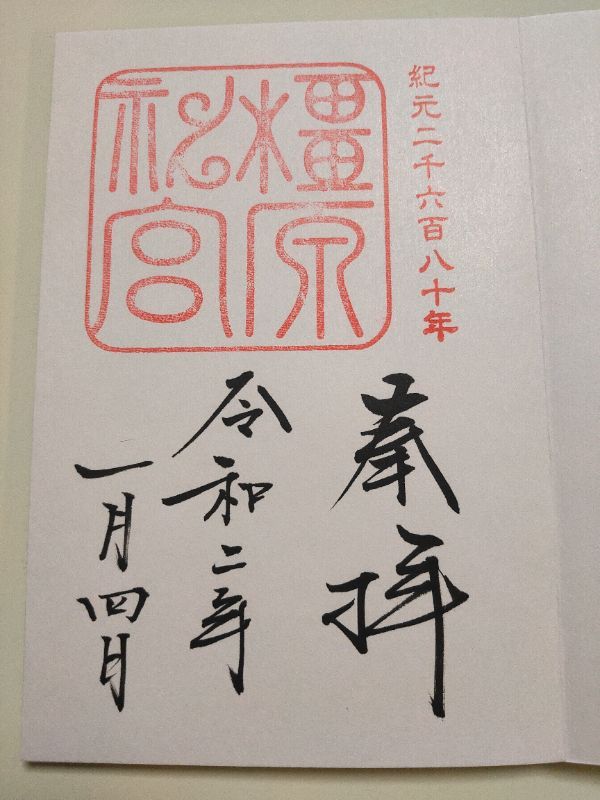 紀元二千六百八十年
橿原
神宮
奉拝
令和二年
一月四日